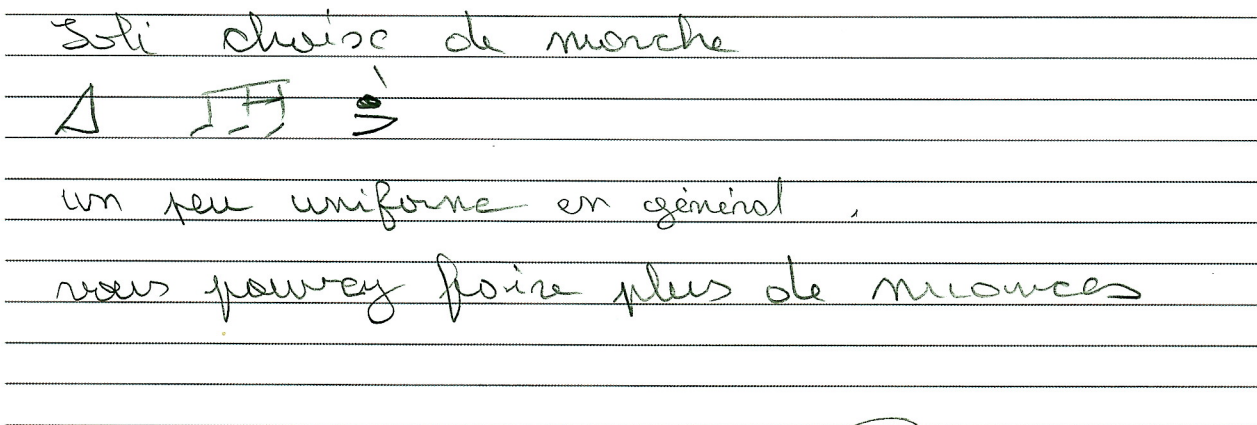 Joli choix de marche
un peu uniforme en général.
vous pouvez faire plus de nuances